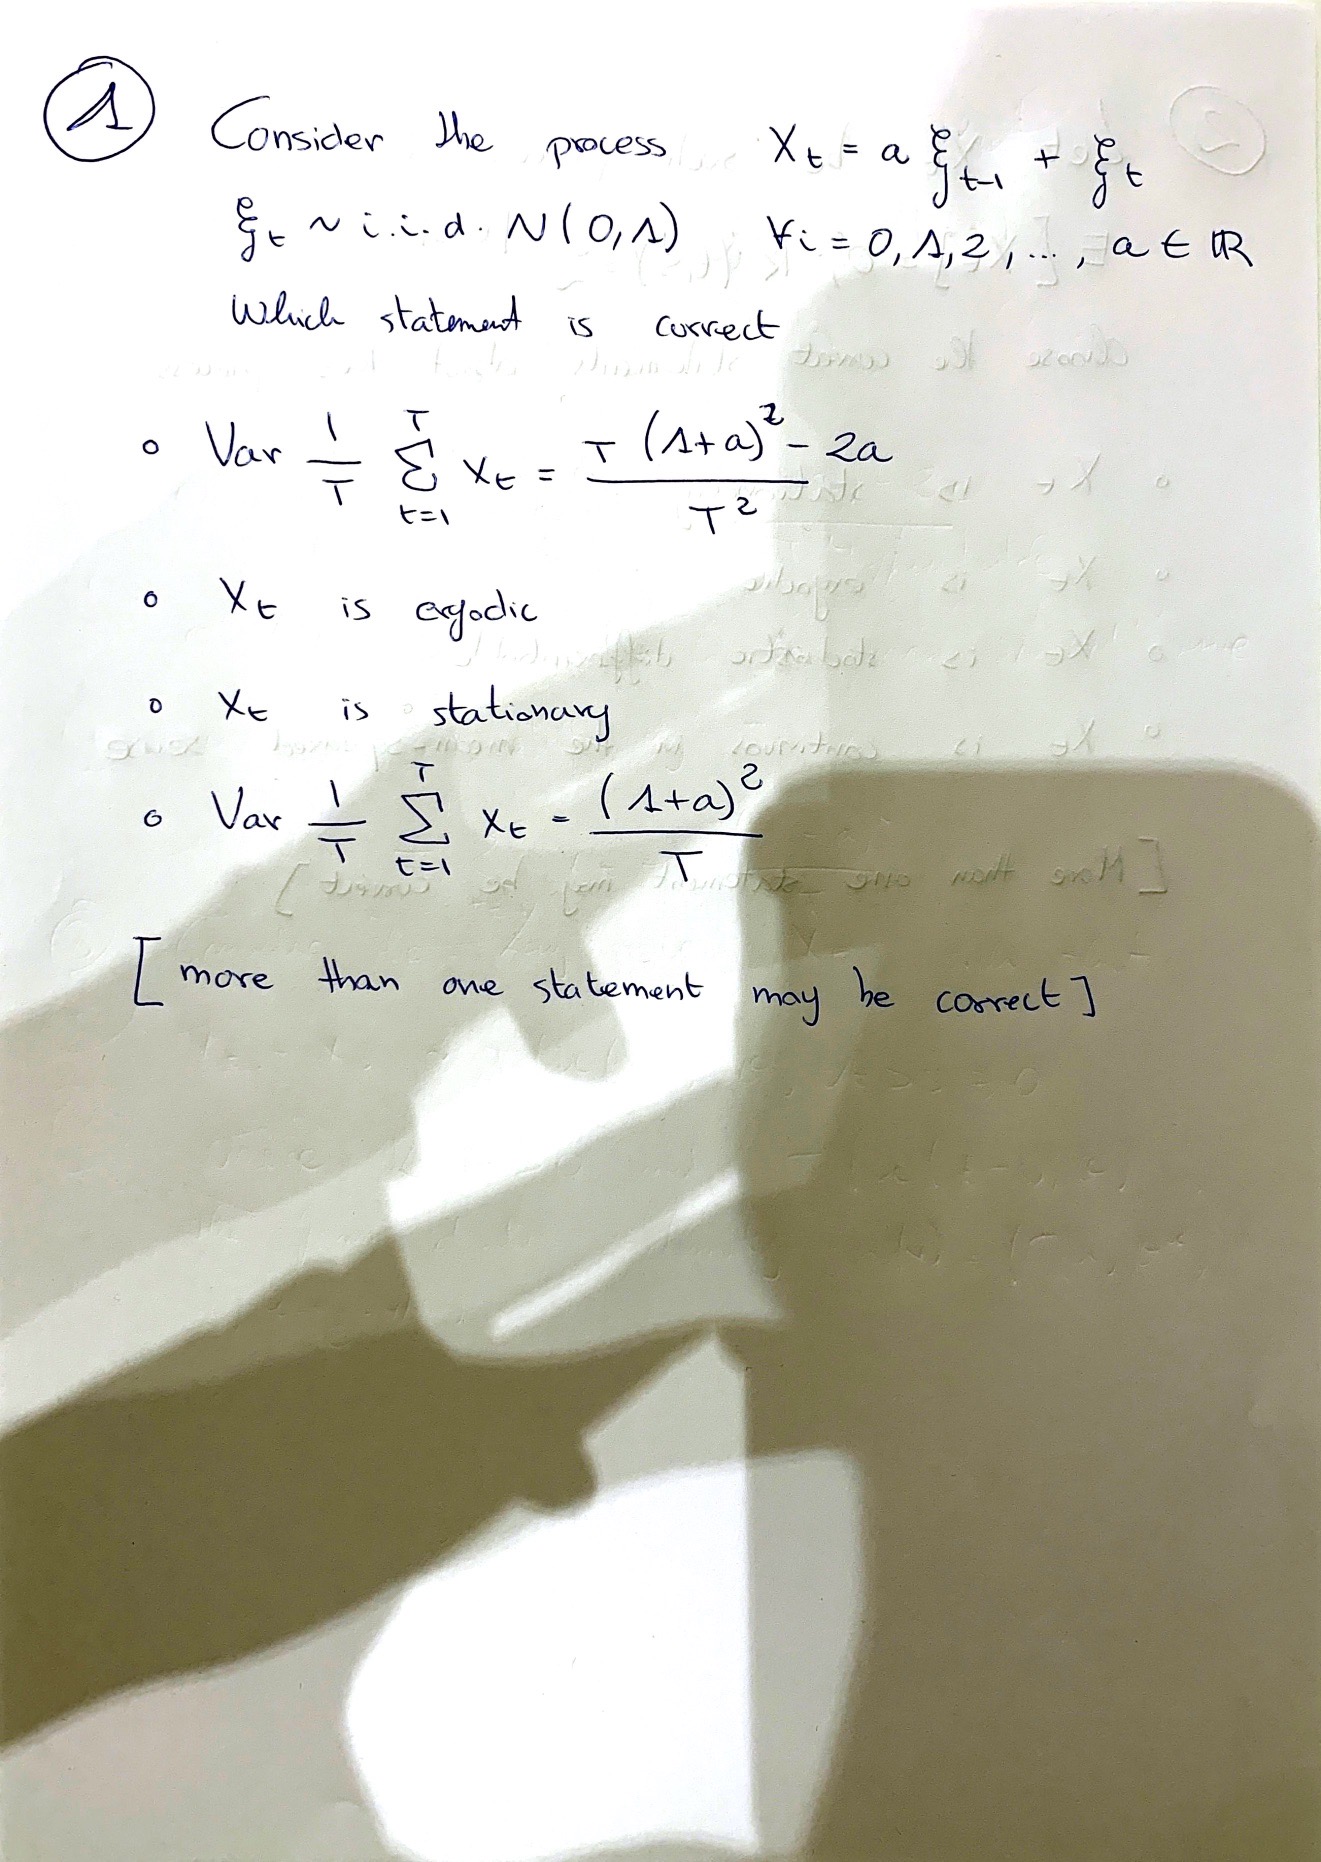 1 Consider the process X_t = a ξ_{t-1} + ξ_t
ξ_t ~ i.i.d. N(0,1) ∀i = 0,1,2,..., a ∈ ℝ
Which statement is correct
o Var 1/T Σ_{t=1}^{T} X_t = (T (1+a)^2 - 2a)/T^2
o X_t is ergodic
o X_t is stationary
o Var 1/T Σ_{t=1}^{T} X_t = (1+a)^2/T
[more than one statement may be correct]